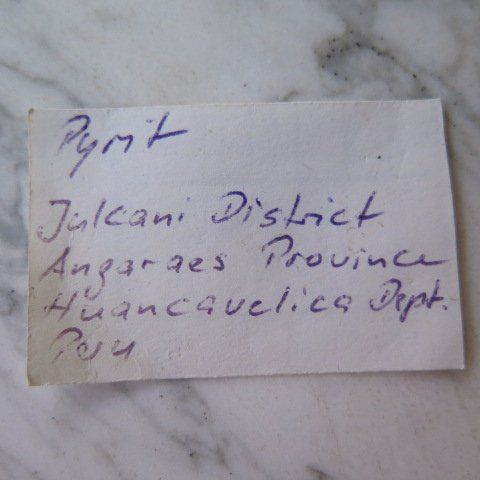 Pyrit
Julcani District
Angaraes Province
Huancavelica Dept.
Peru